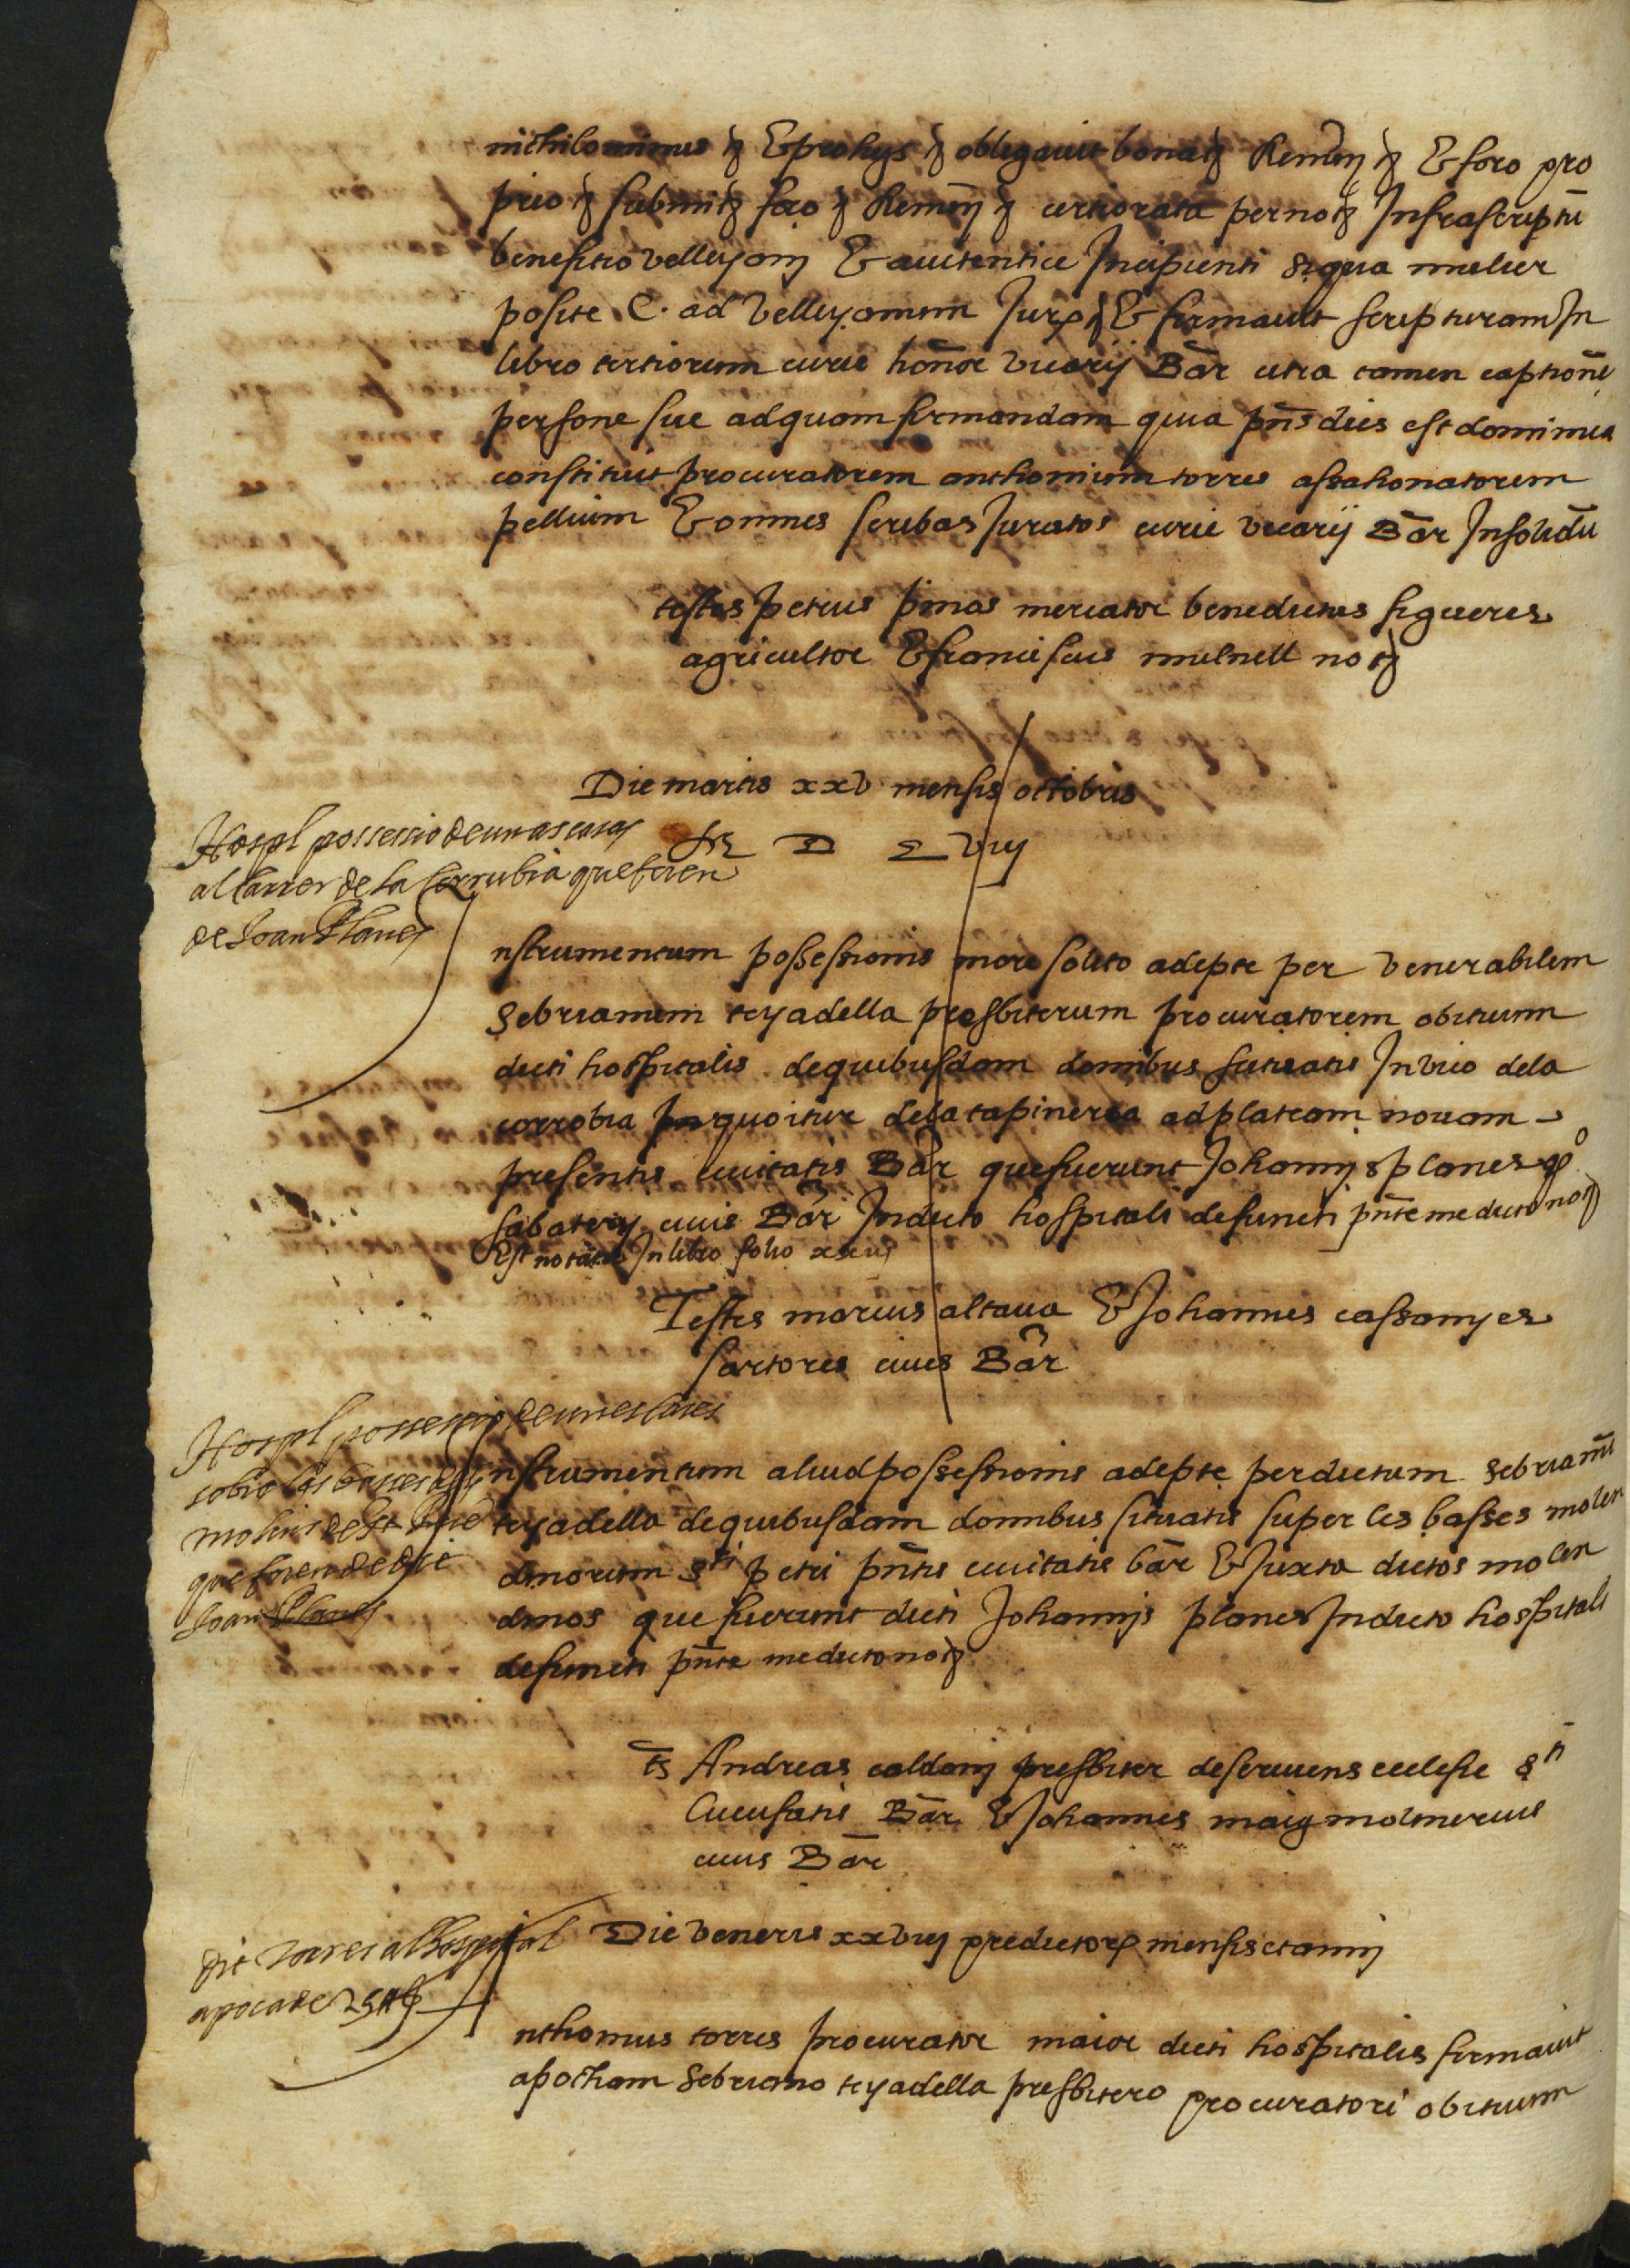 nichilominus etc Et pro hijs etc obligavit bona etc Renun etc Et foro pro
prio etc submit etc foro etc Renun etc certiorata per not etc Infrascriptu
benefitio velleyani Et autentice Incipienti siqua mulier
posite C. ad velleyanum Jur etc Et firmavit scripturam In
libro tertiorum curie honor vicarij Bar citra tamen captione
persone sue ad quam firmandam quia pns dies est dominica
constituit procuratorem anthonium torres assahonatorem
pellium Et omnes scribas Juratos curie vicarij Bar Insolidu
testes petrus pinas mercator benedictus figueres
agricultor Et franciscus mulnell not
Die martis xxv mensis octobris
Hospl possessio de unas casas
al carrer de la Corrubia que foren
de Joan Planes
nstrumentum possessionis more solito adepte per venerabilem
Sebrianum teyadella presbiterum procuratorem obituum
dicti hospitalis de quibusdam domibus situatis In vico dela
corrobia In quo itur dela tapineria ad plateam novam
presentis civitatis Bar que fuerunt Johannis planes qo
sabaterij civis Bar In dicto hospitali defuncti pnte me dicto not
Est notatu In libro folio
Testes marcus altava Et Johannes cassanyes
sartores cives Bar
Hospl possessio de unes cases
sobre las basses dels
molins de St Pere
que foren de dit
Joan Planes
nstrumentum aliud possessionis adepte per dictum Sebrianu
teyadella de quibusdam domibus situatis super les basses molen
dinorum Sti petri pntis civitatis bar Et Juxta dictos molen
dinos que fuerunt dicti Johannis planes In dicto hospitali
defuncti pnte me dicto not
ts Andreas caldoni presbiter deserviens ecclesie Sti
Cucufatis Bar Et Johannes maig molinerius
civis Bar
Die veneris xxviij predictor mensis et anni
dit Torres al hospital
apoca de 25
nthonius torres procurator maior dicti hospitalis firmavit
apocham Sebriano teyadella presbitero procuratori obituum